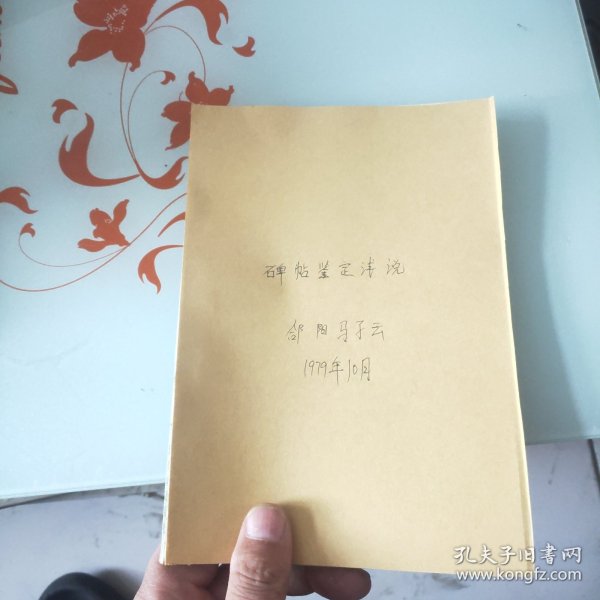 碑帖鉴定浅说
郃阳马子云
1979年10月
孔夫子旧书网
www.kongfz.com